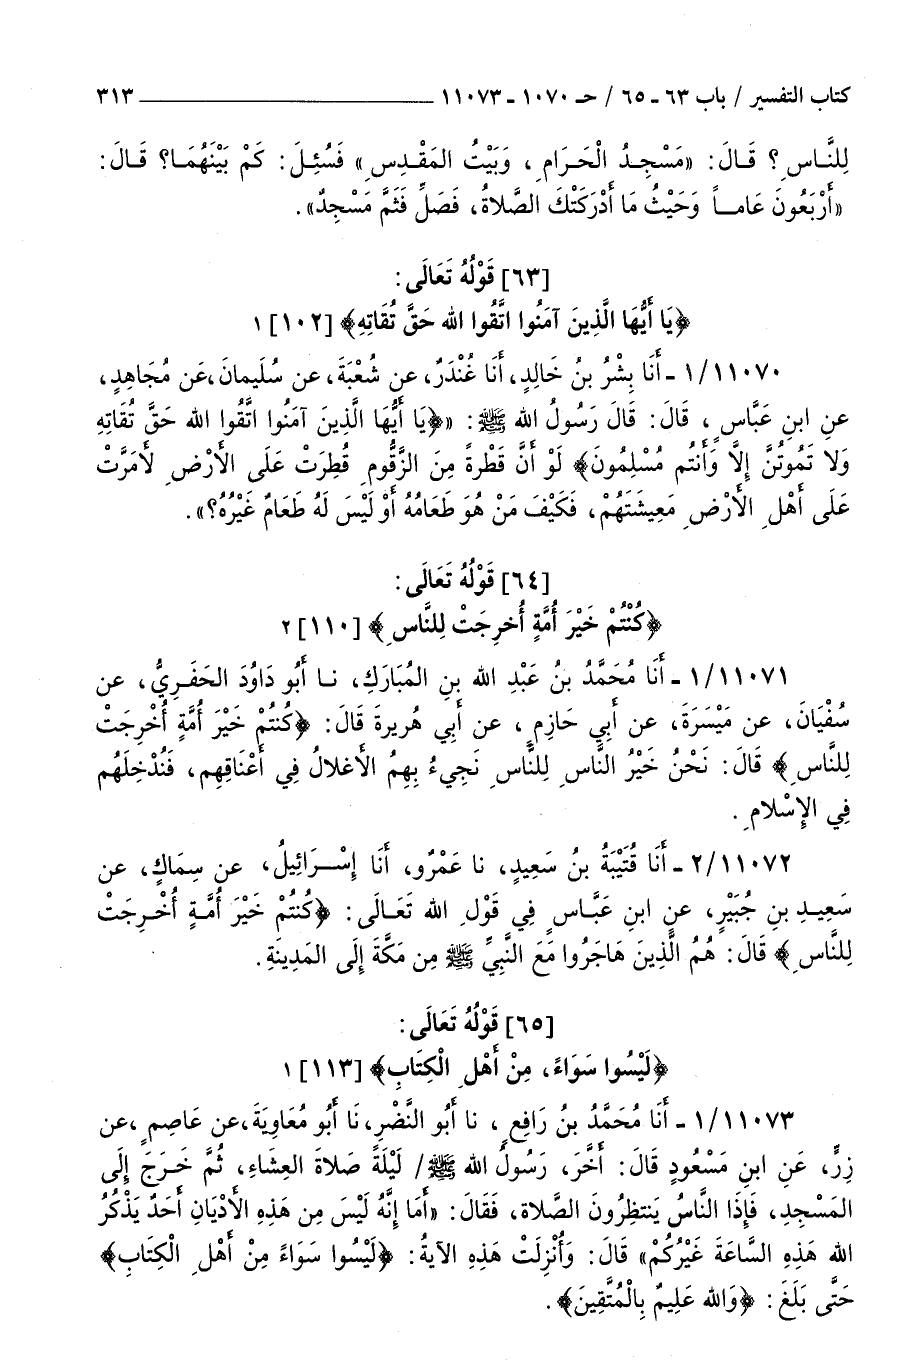 كتاب التفسير / باب ٦٣ ـ ٦٥ / حـ ١٠٧٠ ـ ١١٠٧٣ ــــــــــــــــــــــــ ٣١٣
لِلنَّاسِ؟ قَالَ: «مَسْجِدُ الْحَرَامِ، وَبَيْتُ المَقْدِسِ» فَسُئِلَ: كَمْ بَيْنَهُمَا؟ قَالَ:
«أَرْبَعُونَ عَاماً وَحَيْثُ مَا أَدْرَكَتْكَ الصَّلاةُ، فَصَلِّ فَثَمَّ مَسْجِدٌ».
[٦٣] قَوْلُهُ تَعَالَى:
﴿يَا أَيُّهَا الَّذِينَ آمَنُوا اتَّقُوا الله حَقَّ تُقَاتِهِ﴾ [١٠٢] ١
١/١١٠٧٠ ـ أَنَا بِشْرُ بنُ خَالِدٍ، أَنَا غُنْدَرٌ، عن شُعْبَةَ، عن سُلَيمانَ، عَن مُجَاهِدٍ،
عنِ ابنِ عَبَّاسٍ، قَالَ: قَالَ رَسُولُ الله ﷺ: «﴿يَا أَيُّهَا الَّذِينَ آمَنُوا اتَّقُوا الله حَقَّ تُقَاتِهِ
وَلا تَمُوتُنَّ إِلَّا وَأَنتُم مُسْلِمُونَ﴾ لَوْ أَنَّ قَطْرةً مِنَ الزَّقُّومِ قُطِرَتْ عَلَى الأَرْضِ لأَمَرَّتْ
عَلَى أَهْلِ الأَرْضِ مَعِيشَتَهُمْ، فَكَيْفَ مَنْ هُوَ طَعَامُهُ أَوْ لَيْسَ لَهُ طَعَامٌ غَيْرُهُ؟».
[٦٤] قَوْلُهُ تَعَالَى:
﴿كُنْتُمْ خَيْرَ أُمَّةٍ أُخرِجَتْ لِلنَّاسِ﴾ [١١٠] ٢
١/١١٠٧١ ـ أَنَا مُحَمَّدُ بنُ عَبْدِ الله بنِ المُبَارَكِ، نا أَبُو دَاوُدَ الحَفَرِيُّ، عن
سُفْيَانَ، عن مَيْسَرَةَ، عن أَبِي حَازِمٍ، عن أَبِي هُريرةَ قَالَ: ﴿كُنتُمْ خَيْرَ أُمَّةٍ أُخْرِجَتْ
لِلنَّاسِ﴾ قَالَ: نَحْنُ خَيْرُ النَّاسِ لِلنَّاسِ نَجِيءُ بِهِمُ الأَغلالُ فِي أَعْنَاقِهِم، فَنُدْخِلَهُم
فِي الإِسْلامِ.
٢/١١٠٧٢ ـ أَنَا قُتَيْبَةُ بنُ سَعِيدٍ، نا عَمْرُو، أَنَا إِسْرَائِيلُ، عن سِمَاكٍ، عن
سَعِيدِ بنِ جُبَيْرٍ، عنِ ابنِ عَبَّاسٍ فِي قَوْلِ الله تَعَالَى: ﴿كُنْتُمْ خَيْرَ أُمَّةٍ أُخْرِجَتْ
لِلنَّاسِ﴾ قَالَ: هُمُ الَّذِينَ هَاجَرُوا مَعَ النَّبِيِّ ﷺ مِن مَكَّةَ إِلَى المَدِينَةِ.
[٦٥] قَوْلُهُ تَعَالَى:
﴿لَيْسُوا سَوَاءً، مِنْ أَهْلِ الْكِتَابِ﴾ [١١٣] ١
١/١١٠٧٣ ـ أَنَا مُحَمَّدُ بنُ رَافِعٍ، نا أَبُو النَّضْرِ، نَا أَبُو مُعَاوِيَةَ، عن عَاصِمٍ، عن
زِرٍّ، عَنِ ابنِ مَسْعُودٍ قَالَ: أَخَّرَ، رَسُولُ الله ﷺ/ لَيْلَةً صَلاةَ العِشَاءِ، ثُمَّ خَرَجَ إِلَى
المَسْجِدِ، فَإِذَا النَّاسُ يَنتظِرُونَ الصَّلاة، فَقَالَ: «أَمَا إِنَّهُ لَيْسَ مِن هَذِهِ الأَدْيَانِ أَحَدٌ يَذْكُرُ
الله هَذِهِ السَّاعَةَ غَيْرُكُمْ» قَالَ: وَأُنْزِلَتْ هَذِهِ الآيةُ: ﴿لَيْسُوا سَوَاءً مِنْ أَهْلِ الْكِتَابِ﴾
حَتَّى بَلَغَ: ﴿وَالله عَلِيمٌ بِالْمُتَّقِينَ﴾.